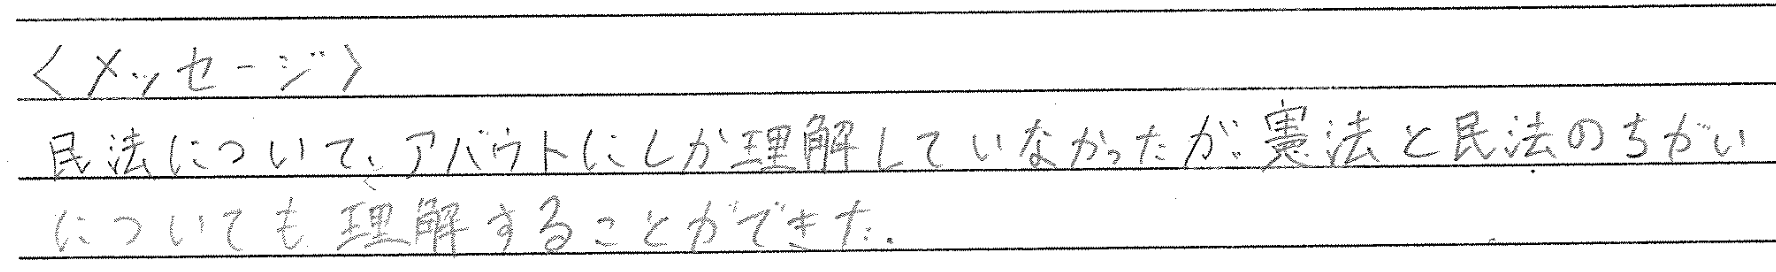 <メッセージ>
民法について、アバウトにしか理解していなかったが、憲法と民法のちがい
についても理解することができた。